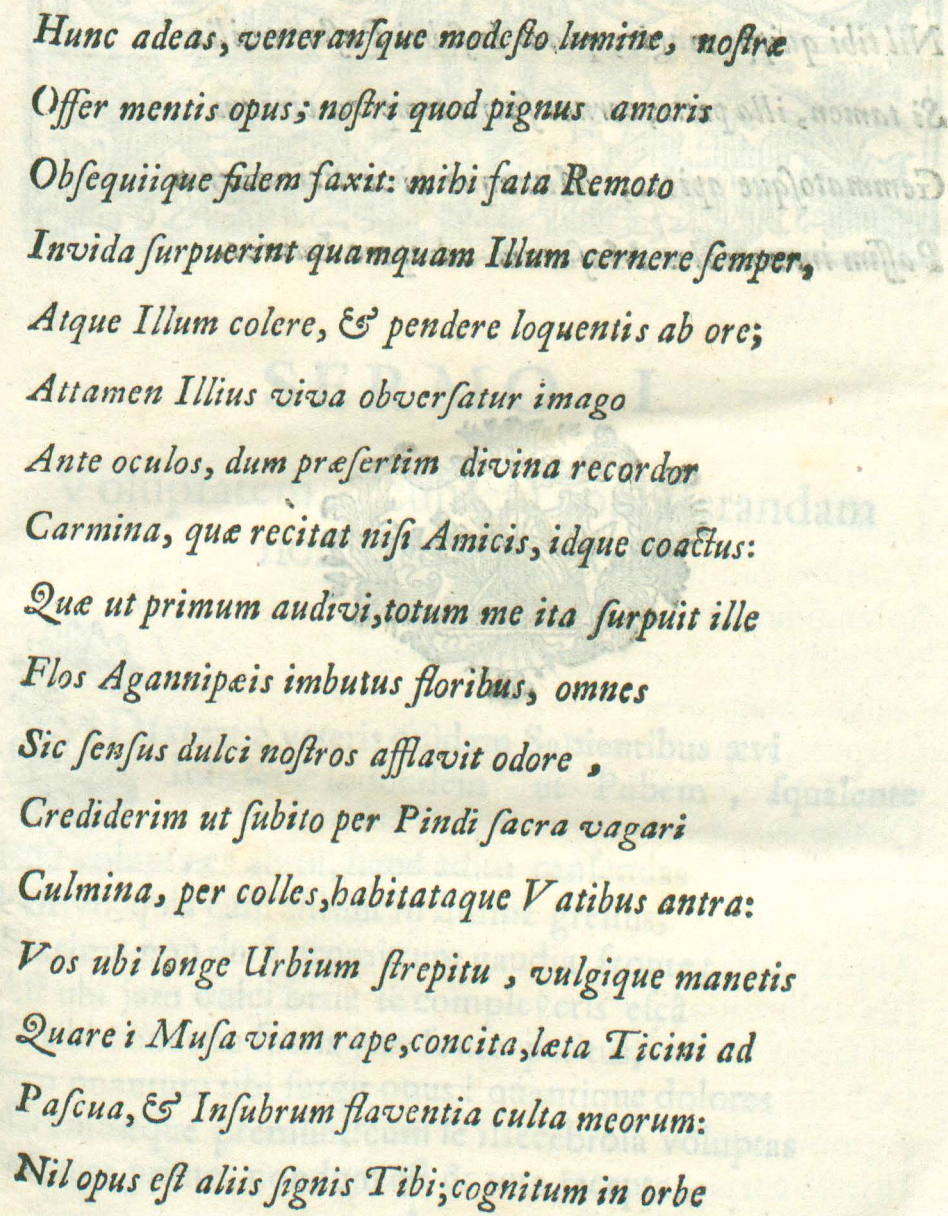 Hunc adeas, veneranſque modeſto lumine, noſtræ
Offer mentis opus; noſtri quod pignus amoris
Obſequiique fidem faxit: mihi fata Remoto
Invida ſurpuerint quamquam Illum cernere ſemper,
Atque Illum colere, & pendere loquentis ab ore;
Attamen Illius viva obverſatur imago
Ante oculos, dum præſertim divina recordor
Carmina, quæ recitat niſi Amicis, idque coactus:
Quæ ut primum audivi, totum me ita ſurpuit ille
Flos Agannipæis imbutus floribus, omnes
Sic ſenſus dulci noſtros afflavit odore,
Crediderim ut ſubito per Pindi ſacra vagari
Culmina, per colles, habitataque Vatibus antra:
Vos ubi longe Urbium ſtrepitu, vulgique manetis
Quare i Muſa viam rape, concita, læta Ticini ad
Paſcua, & Inſubrum flaventia culta meorum:
Nil opus eſt aliis ſignis Tibi; cognitum in orbe